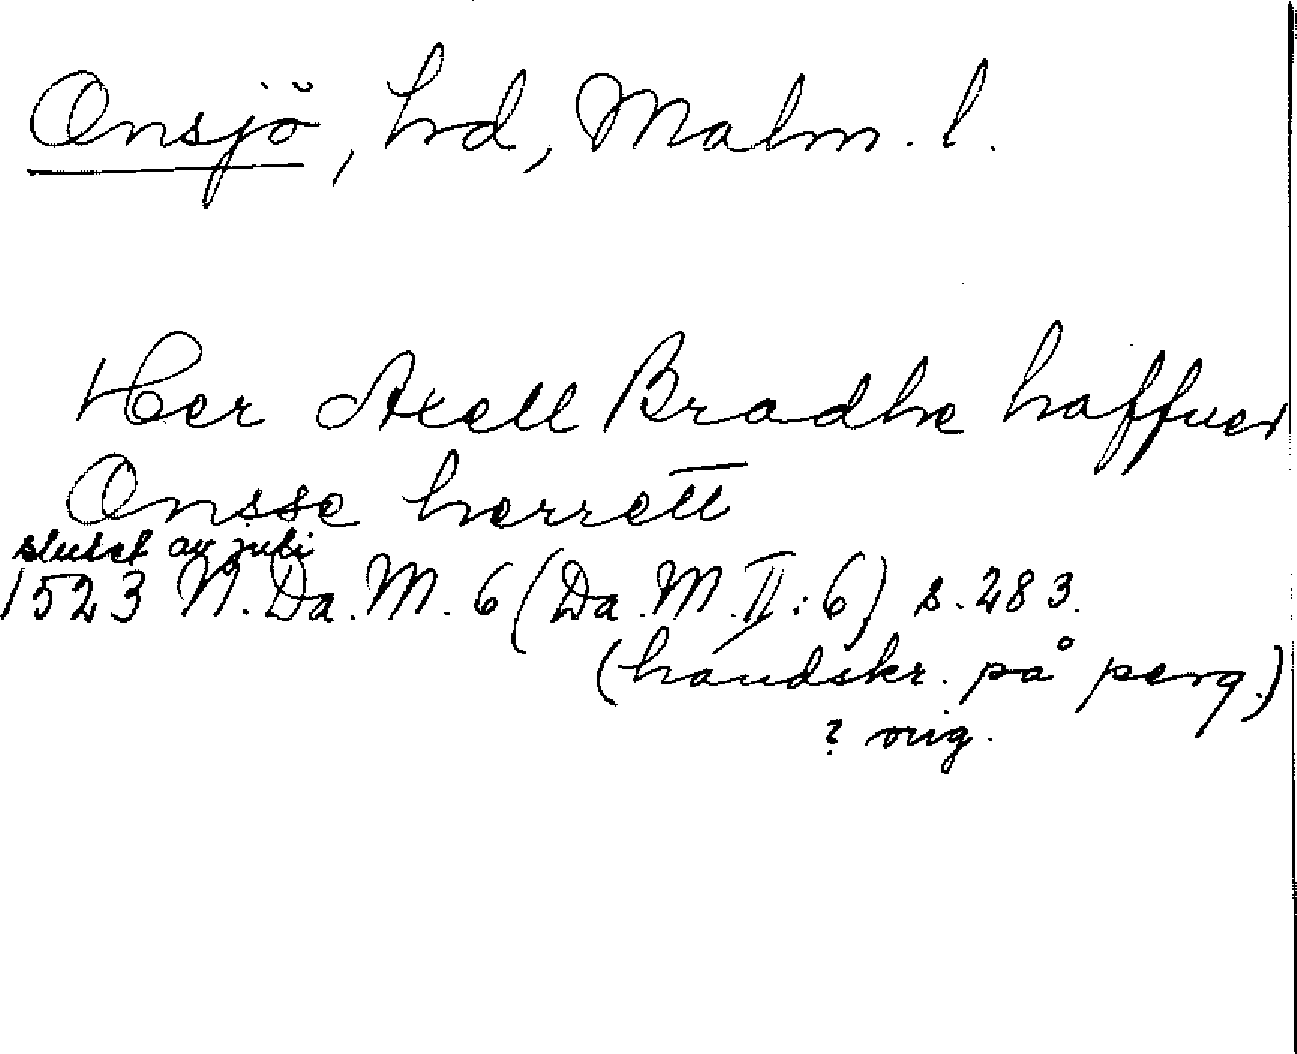 Onsjö, hd, Malm. l.
Her Axell Bradhe haffuer
Onsse herrett
slutet av juli
1523 N. Da. M. 6 (Da. M. II: 6) s. 283.
(handskr. på perg.)
? orig.